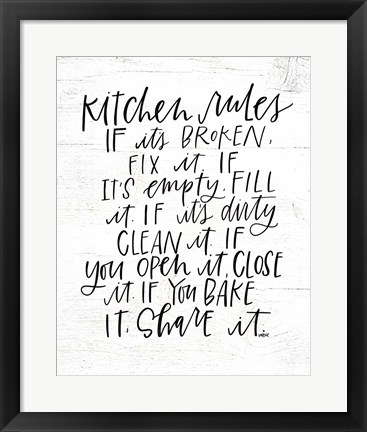 kitchen rules
IF its BROKEN,
FIX it. IF
IT'S empty, FILL
it. IF it's dirty
CLEAN it. IF
you open it, CLOSE
it. IF YOU BAKE
IT, Share it.